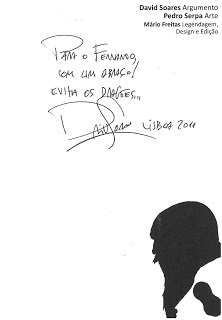 David Soares Argumento
Pedro Serpa Arte
Mário Freitas Legendagem,
Design e Edição
Para o Fernando,
com um abraço!
Evita os dragões...
LISBOA 2011